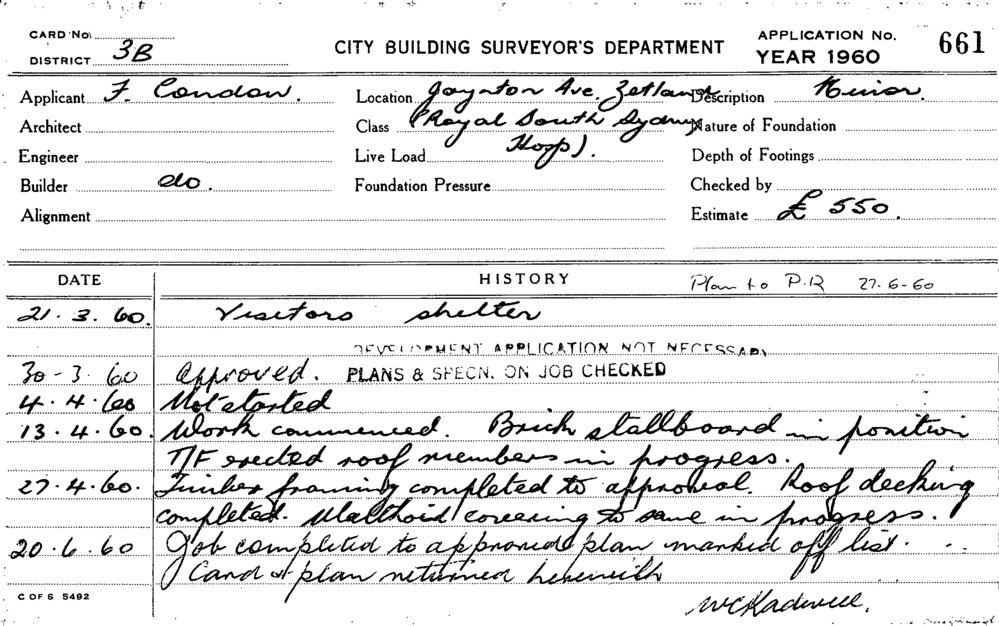 CARD No.
DISTRICT 3B
CITY BUILDING SURVEYOR'S DEPARTMENT
APPLICATION No. 661
YEAR 1960
Applicant F. Condon. Location Joynton Ave. Zetland Description Minor.
Architect Class (Royal South Sydney Nature of Foundation
Engineer Live Load Hosp). Depth of Footings
Builder do. Foundation Pressure Checked by
Alignment Estimate £ 550.
DATE HISTORY Plan to P.R 27-6-60
21.3.60. Visitors shelter
DEVELOPMENT APPLICATION NOT NECESSARY
30-3.60 approved. PLANS & SPECN. ON JOB CHECKED
4.4.60 Not started
13.4.60. Work commenced. Brick stallboard in position
T/F erected roof members in progress.
27.4.60. Timber framing completed to approval. Roof decking
completed. Malthoid covering to same in progress.
20.6.60 Job completed to approved plan marked off list.
Card & plan returned herewith
C OF S 5492